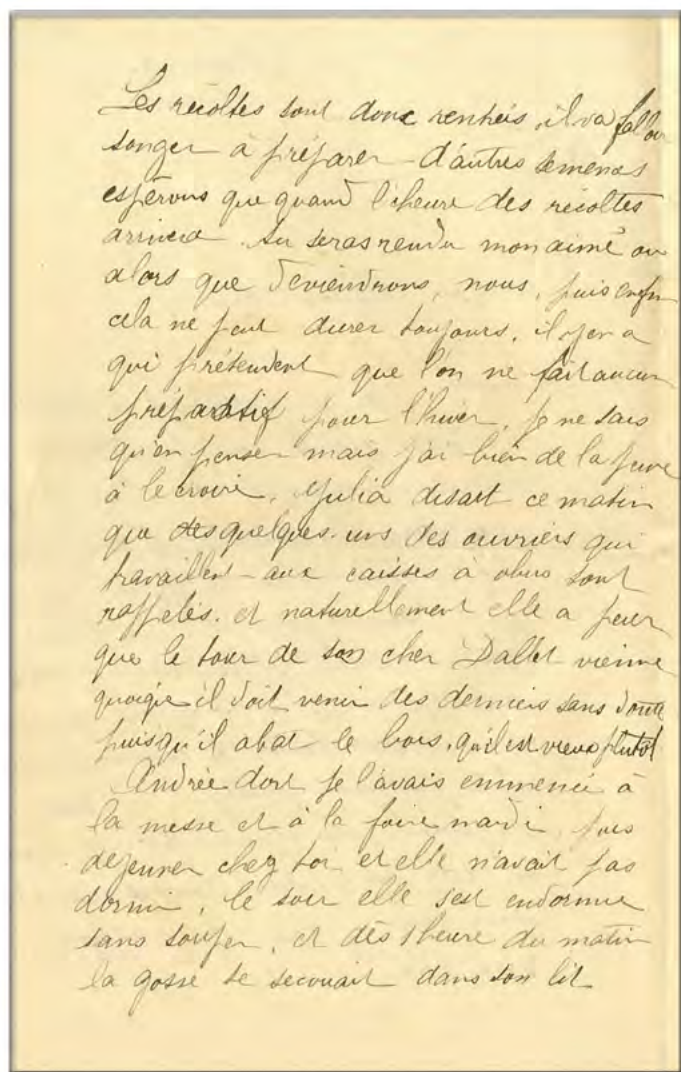 Les récoltes sont donc rentrées, il va falloir
songer à préparer d'autres semences
espérons que quand l'heure des récoltes
arrivera tu seras rendu mon aimé ou
alors que deviendrons, nous, puis enfin
cela ne peut durer toujours, il y en a
qui prétendent que l'on ne fait aucun
préparatif pour l'hiver, je ne sais
qu'en penser mais j'ai bien de la peine
à le croire, Julia disait ce matin
que quelques-uns des ouvriers qui
travaillent aux caisses à obus sont
rappelés. et naturellement elle a peur
que le tour de son cher Dallet vienne
quoique il doit venir des derniers sans doute
puisqu'il abat le bois, qu'il est vieux plutôt
Andrée dort je l'avais emmenée à
la messe et à la foire mardi, puis
déjeuner chez toi et elle n'avait pas
dormi, le soir elle s'est endormie
sans souper, et dès 1 heure du matin
la gosse se secouait dans son lit